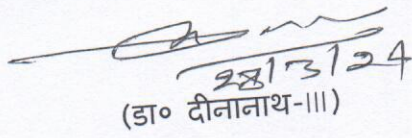 28/3/24
(डा० दीनानाथ-III)